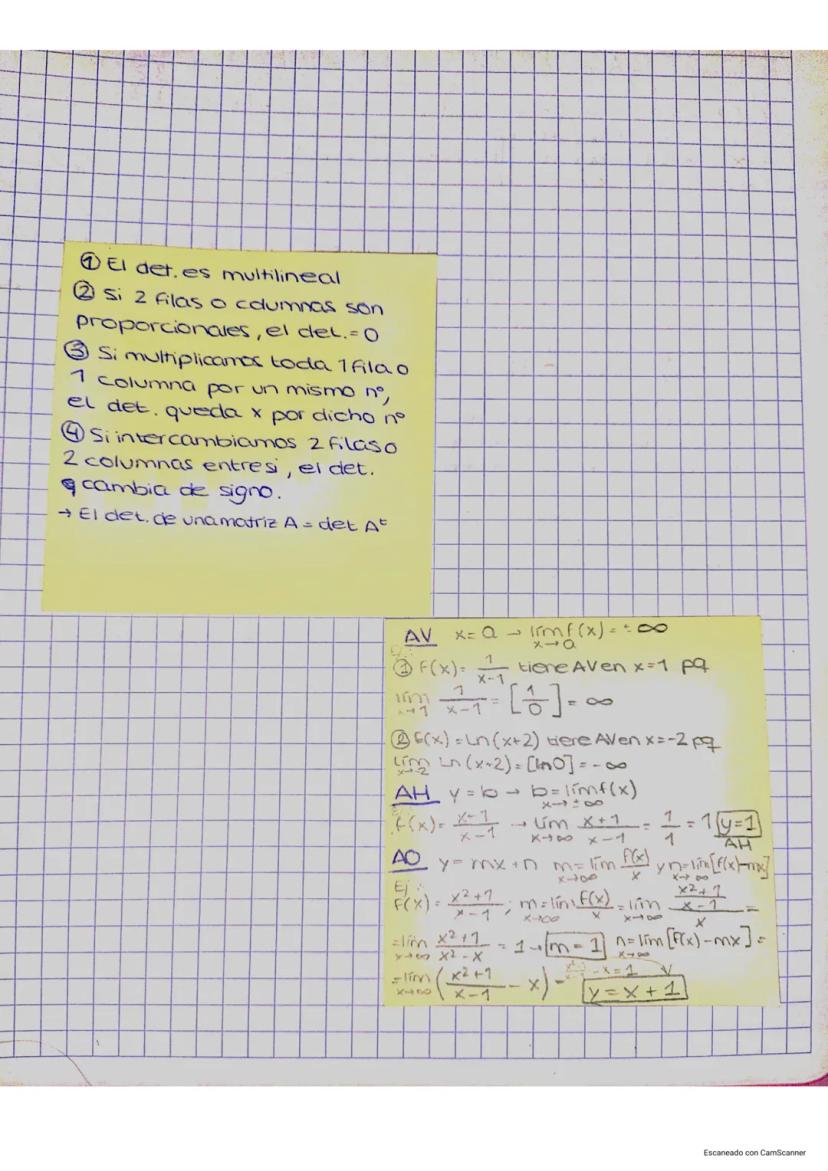 ① El det. es multilineal
② Si 2 filas o columnas son
proporcionales, el det. = 0
③ Si multiplicamos toda 1 fila o
1 columna por un mismo nº,
el det. queda x por dicho nº
④ Si intercambiamos 2 filas o
2 columnas entre si, el det.
cambia de signo.
→ El det. de una matriz A = det Aᵗ
AV x = a → lim f(x) = ± ∞
x→a
① f(x) = 1/(x-1) tiene AV en x=1 pq
lim x→1 1/(x-1) = [1/0] = ∞
② f(x) = Ln(x+2) tiene AV en x=-2 pq
Lim x→-2 Ln(x+2) = [ln0] = -∞
AH y = b → b = lim f(x)
x→±∞
f(x) = (x+1)/(x-1) → Lim x→∞ (x+1)/(x-1) = 1/1 = 1 y=1
AH
AO y = mx + n m = lim x→∞ f(x)/x y n = lim x→∞ [f(x)-mx]
Ej:
f(x) = (x²+1)/(x-1); m = lim x→∞ f(x)/x = lim x→∞ ((x²+1)/(x-1))/x =
= lim x→∞ (x²+1)/(x²-x) = 1 → m = 1 n = lim x→∞ [f(x)-mx] =
= lim x→∞ ((x²+1)/(x-1) - x) = - x = 1
y = x + 1
Escaneado con CamScanner